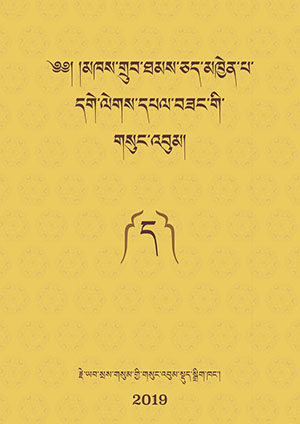 ༄༅། །མཁས་གྲུབ་ཐམས་ཅད་མཁྱེན་པ་
དགེ་ལེགས་དཔལ་བཟང་གི་
གསུང་འབུམ།
ད
རྗེ་ཡབ་སྲས་གསུམ་གྱི་གསུང་འབུམ་སྡུད་སྒྲིག་ཁང་།
2019